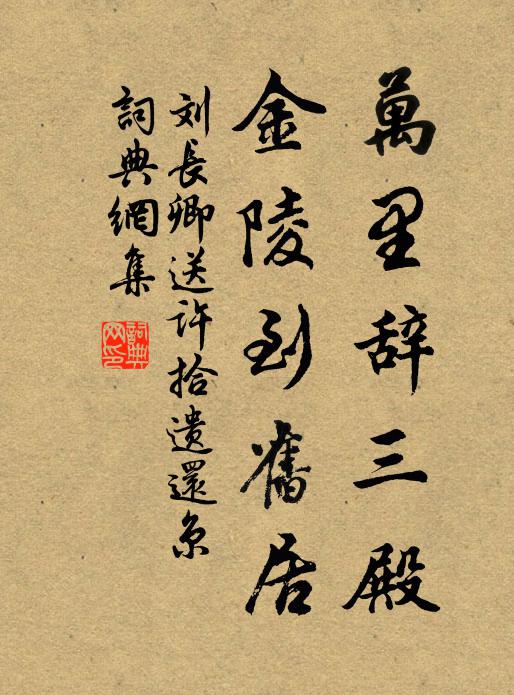 萬里辞三殿
金陵到舊居
刘長卿送許拾遺還京
詞典網集
詞典網印